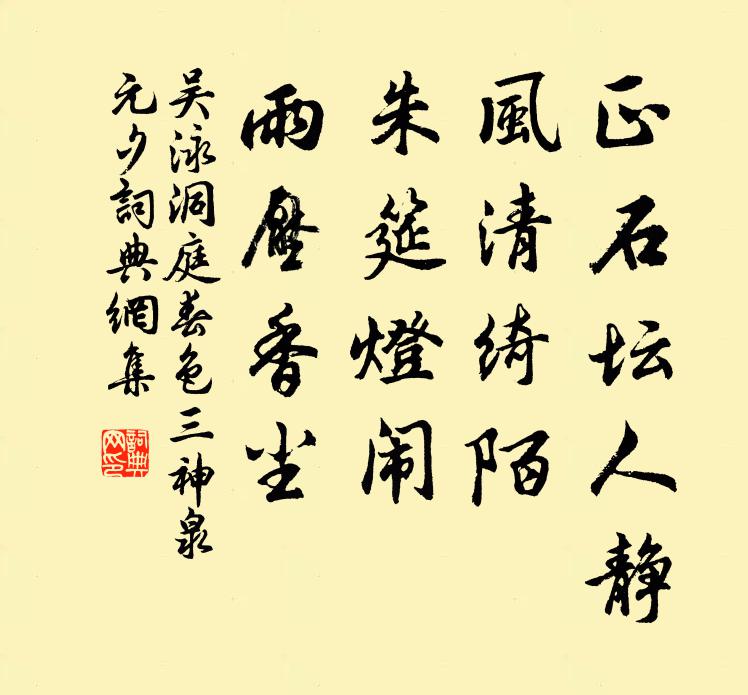 正石坛人静
風清绮陌
朱筵燈闹
雨壓香尘
吴泳洞庭春色三神泉
元夕詞典網集
詞典网印